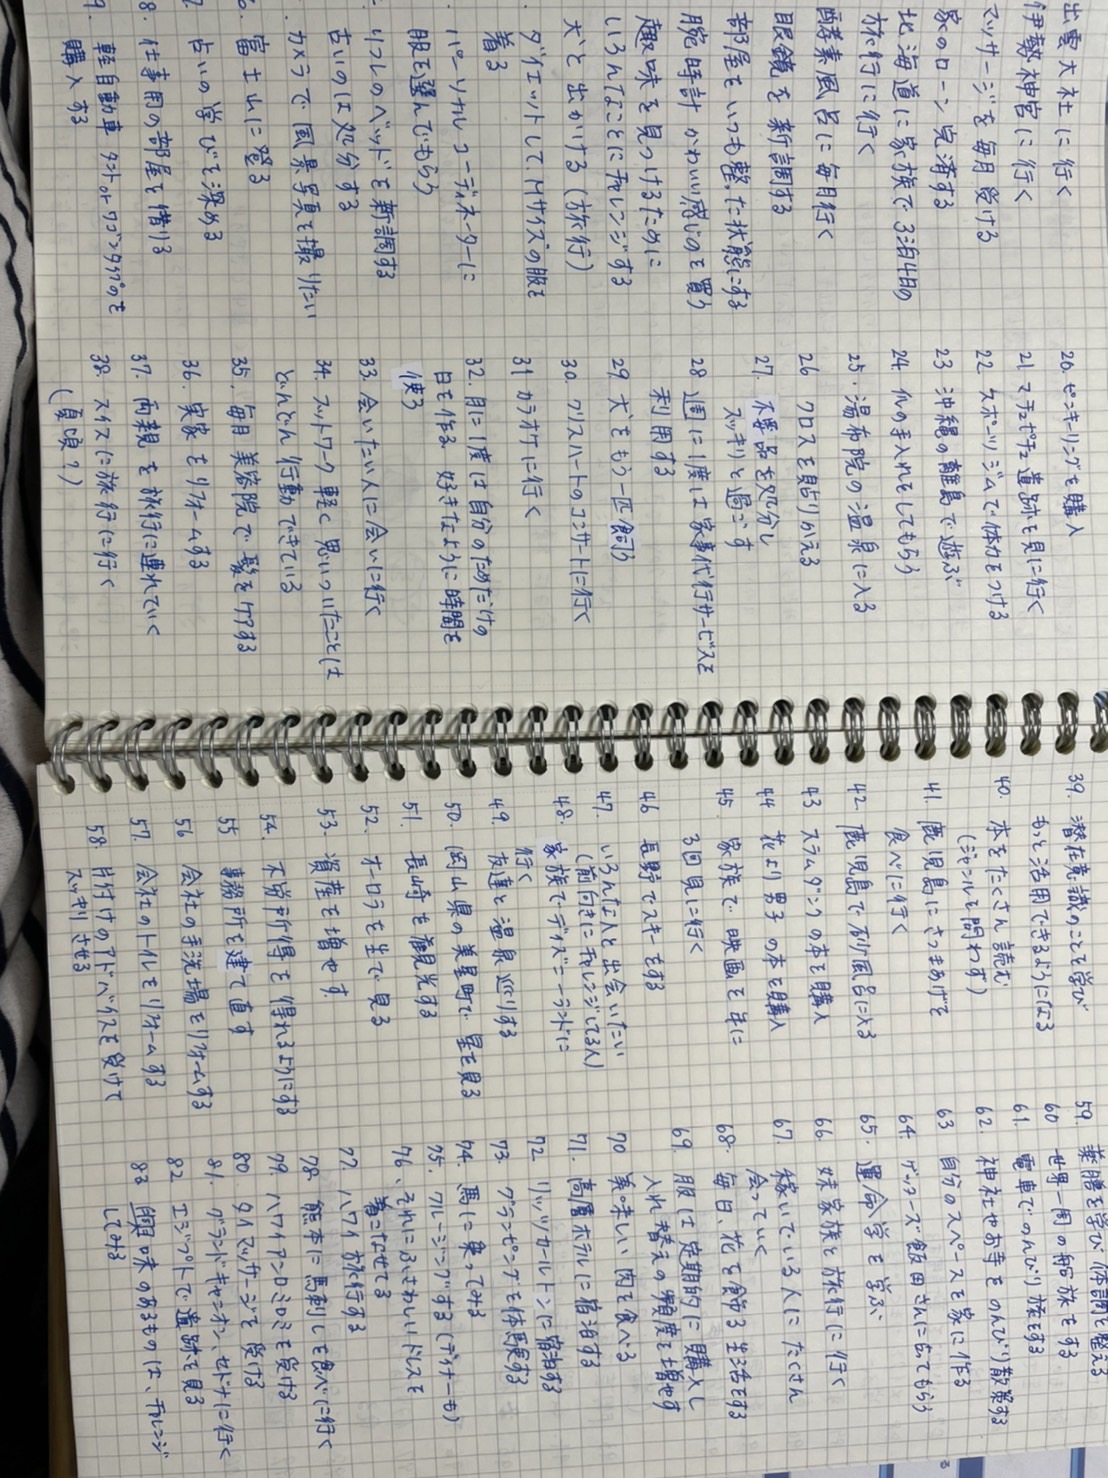 出雲大社に行く
伊勢神宮に行く
マッサージを毎月受ける
家のローン完済する
北海道に家族で3泊4日の
旅行に行く
酵素風呂に毎月行く
眼鏡を新調する
部屋をいつも整った状態にする
腕時計 かわいい感じのを買う
趣味を見つけるために
いろんなことにチャレンジする
犬と出かける(旅行)
ダイエットして、Mサイズの服を
着る
パーソナルコーディネーターに
服を選んでもらう
古いのは処分する
カメラで風景写真を撮りたい
富士山に登る
占いの学びを深める
8. 仕事用の部屋を借りる
9. 軽自動車 タントorワゴンタイプのを
購入する
20. ピンキーリングを購入
21. マチュピチュ遺跡を見に行く
22. スポーツジムで体力をつける
23 沖縄の離島で遊ぶ
24. 仏の手入れをしてもらう
25. 湯布院の温泉に入る
26 クロスを貼りかえる
27. 不要品を処分し
スッキリと過ごす
28 週に1度は家事代行サービスを
利用する
29. 犬をもう一匹飼う
30. グリスハートのコンサートに行く
31 カラオケに行く
32. 月に1度は自分のためだけの
日を作る 好きなように時間を
使う
33. 会いたい人に会いに行く
34. フットワーク軽く思いついたことは
どんどん行動できている
35. 毎月美容院で髪をケアする
36. 実家をリフォームする
37. 両親を旅行に連れていく
38. スイスに旅行に行く
(夏頃?)
39. 潜在意識のことを学び
もっと活用できるようになる
40. 本をたくさん読む
(ジャンルを問わず)
41 鹿児島にさつまあげを
食べに行く
42. 鹿児島で砂風呂に入る
43 スラムダンクの本を購入
44 花より男子の本を購入
45. 家族で映画を年に
3回見に行く
46 長野でスキーをする
47. いろんな人と出会いたい
(前向きにチャレンジしてる人)
48. 家族でディズニーランドに
行く
49. 友達と温泉巡りする
50. 岡山県の美星町で星を見る
51. 長崎を観光する
52. オーロラを生で見る
53. 資産を増やす
54. 不労所得を得れるようにする
55 事務所を建て直す
56 会社の手洗場をリフォームする
57. 会社のトイレをリフォームする
58. 片付けのアドバイスを受けて
スッキリさせる
59. 薬膳を学び体調を整える
60 世界一周の船旅をする
61. 電車でのんびり旅をする
62. 神社やお寺をのんびり散策する
63 自分のスペースを家に作る
64. ゲッターズ飯田さんに占ってもらう
65. 運命学を学ぶ
66 妹家族と旅行に行く
67. 稼いでいる人にたくさん
会っていく
68. 毎日、花を飾る生活をする
69. 服は定期的に購入し
入れ替えの頻度を増やす
70 美味しい肉を食べる
71. 高層ホテルに宿泊する
72. リッツカールトンに宿泊する
73. グランピングを体験する
74. 馬に乗ってみる
75. クルージングする(ディナーも)
76. それにふさわしいドレスを
着こなせてる
77. ハワイ旅行する
78. 熊本に馬刺しを食べに行く
79. ハワイアンロミロミを受ける
80. タイマッサージを受ける
81. グランドキャニオン、セドナに行く
82. エジプトで遺跡を見る
83 興味のあるものは、チャレンジ
してみる